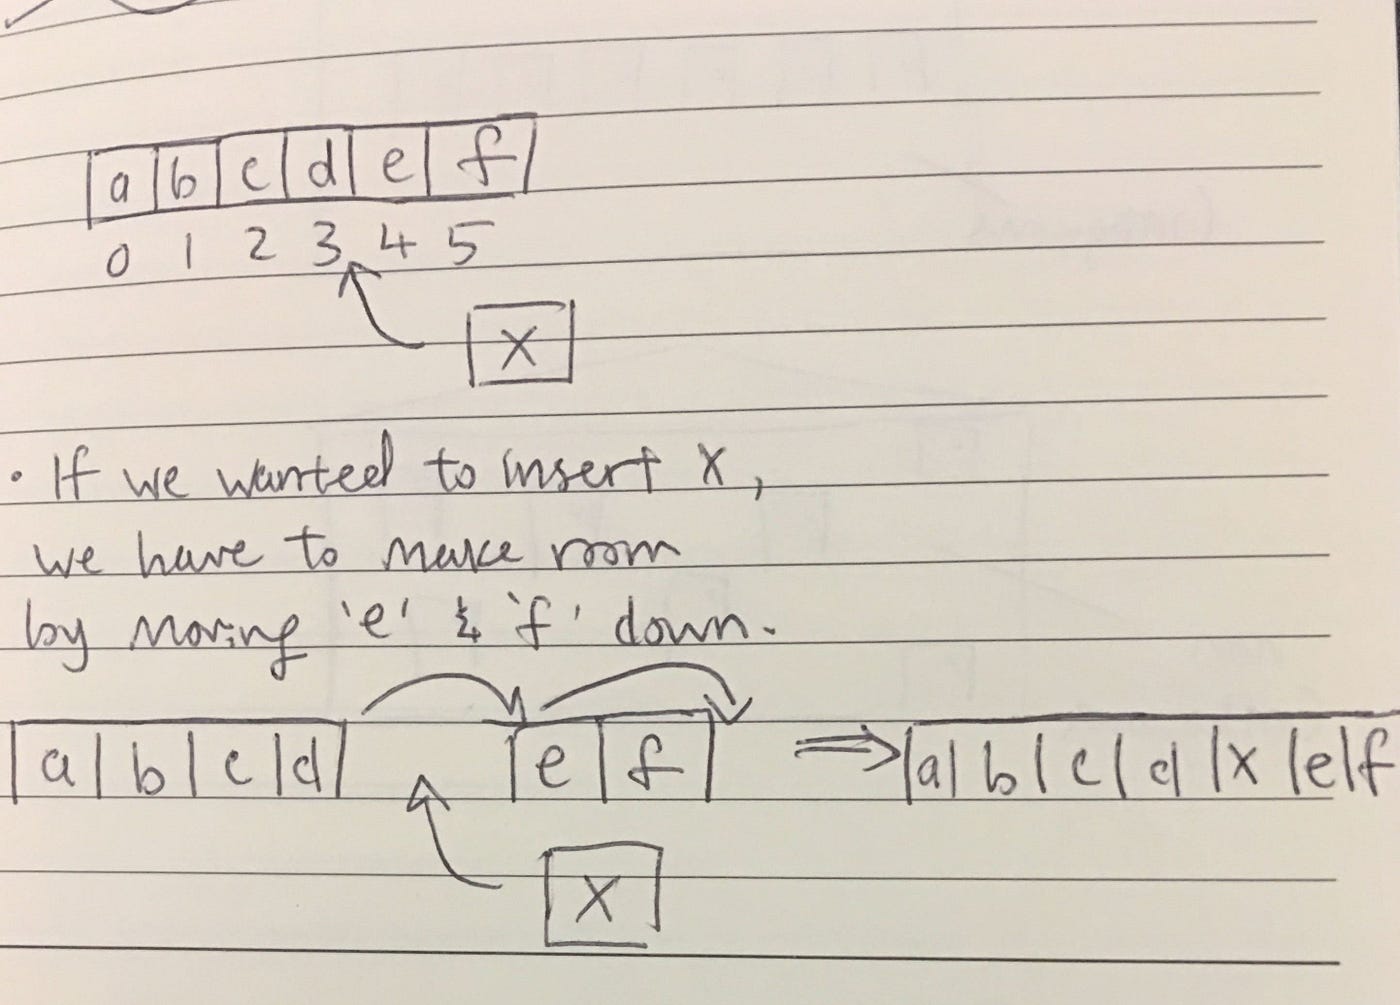 a b c d e f
0 1 2 3 4 5
X
• If we wanted to insert X,
we have to make room
by moving 'e' & 'f' down.
a b c d e f ⇒ a b c d X e f
X